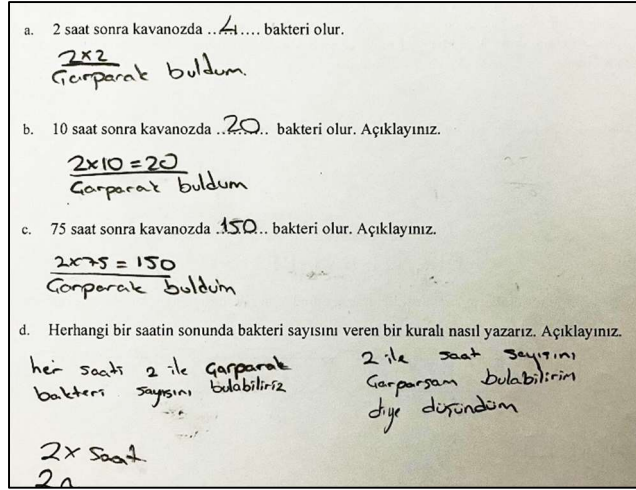 a. 2 saat sonra kavanozda ..4.... bakteri olur.
2x2
Çarparak buldum.
b. 10 saat sonra kavanozda ..20.. bakteri olur. Açıklayınız.
2x10=20
Çarparak buldum
c. 75 saat sonra kavanozda .150.. bakteri olur. Açıklayınız.
2x75 = 150
Çarparak buldum
d. Herhangi bir saatin sonunda bakteri sayısını veren bir kuralı nasıl yazarız. Açıklayınız.
her saati 2 ile Çarparak
bakteri sayısını bulabiliriz
2 ile saat sayısını
Çarparsam bulabilirim
diye düşündüm
2x Saat
2n